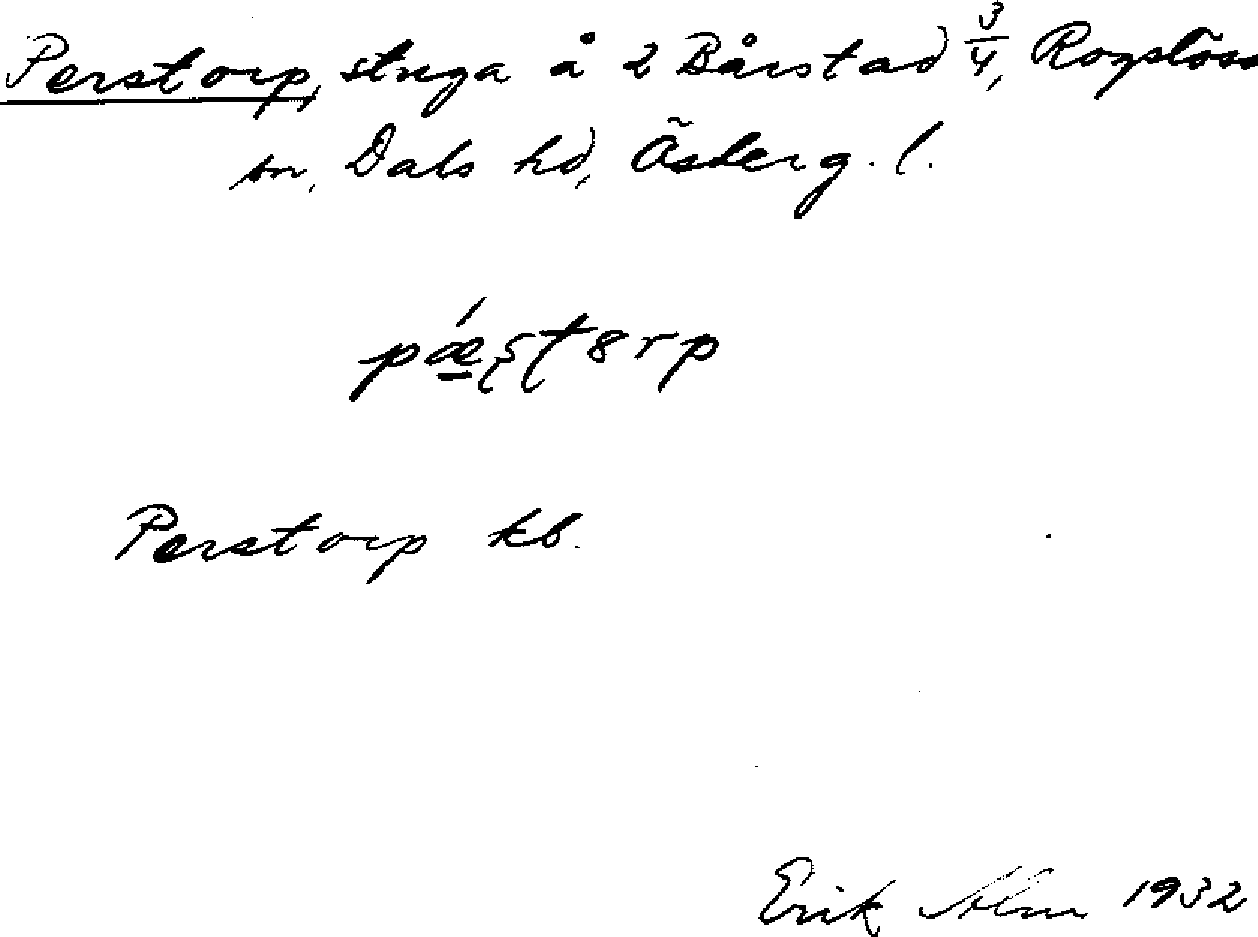 Perstorp, stuga å 2 Bårstad 3/4, Rogslösa
sn, Dals hd, Österg. l.
pǽʂʈ8rp
Perstorp kb.
Erik Alm 1932